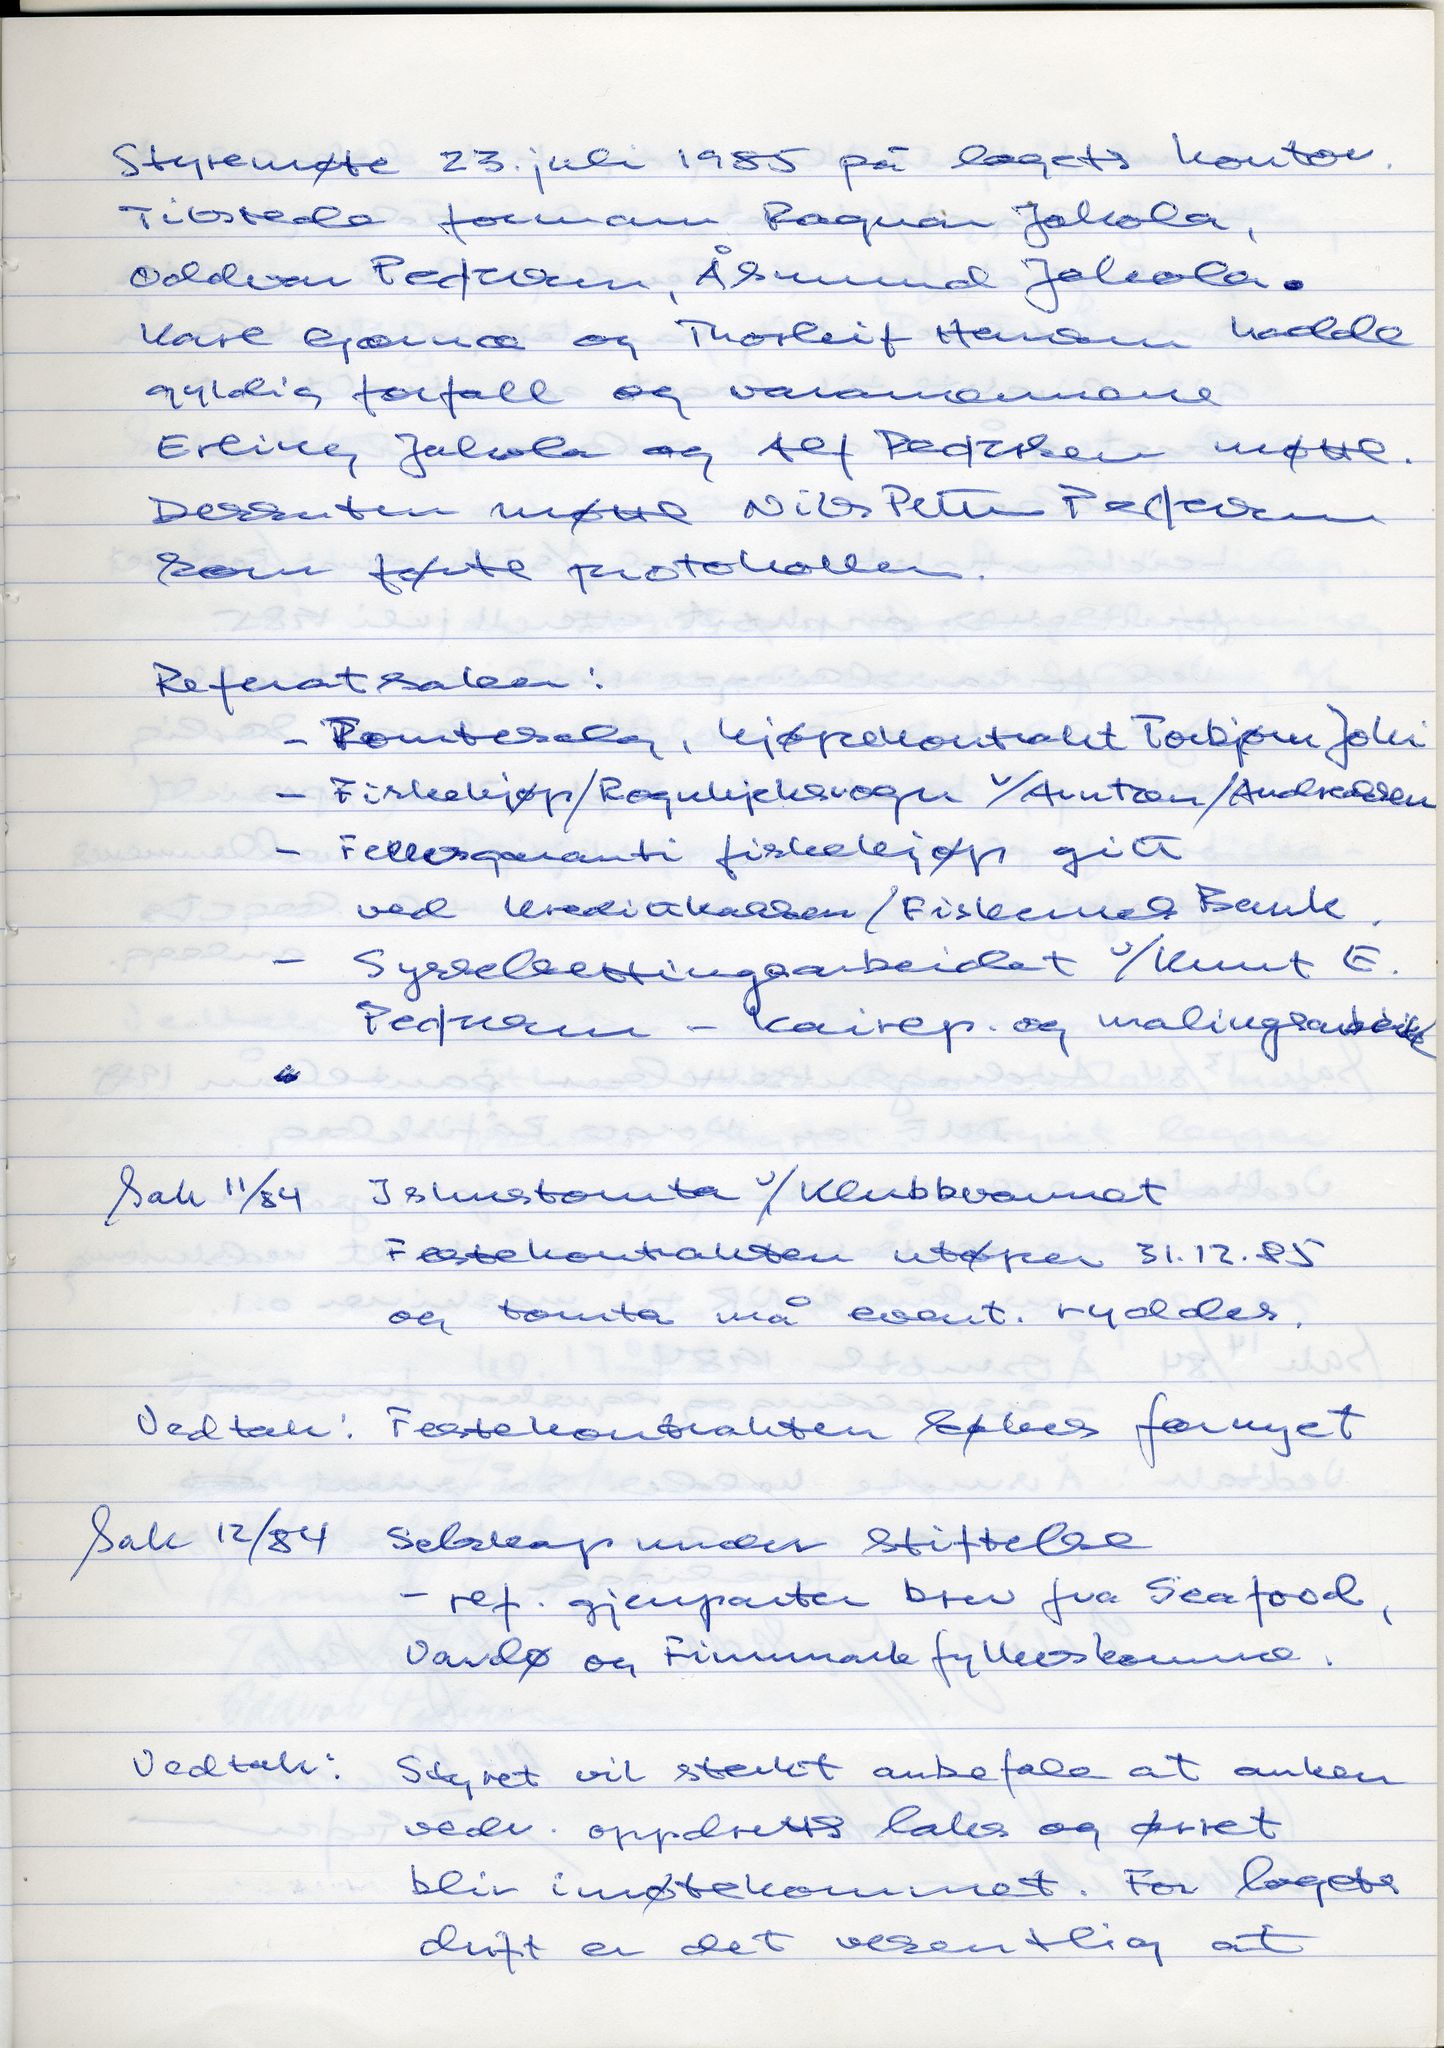 Styremøte 23. juli 1985 på lagets kontor.
Tilstede formann Ragnar Jakola,
Oddvar Pedersen, Åsmund Jakola.
Karl og Thorleif Hansen hadde
gyldig forfall og varamennene
Erling Jakola og Alf Pedersen møtte.
Dessuten møtte Nils Petter Pedersen
som førte protokollen.
Referatsaker:
- Tomtesalg, kjøpekontrakt Torbjørn Joki
- Fiskekjøp/Rognkjeksrogn v/Arntzen/Andreassen
- Fellesgaranti fiskekjøp gitt
ved Kreditkassen/Fiskernes Bank.
- Sysselsettingsarbeidet v/Knut E.
Pedersen - kairep. og malingsarbeid
Sak 11/84 Ishustomta v/Klubbvannet
Festekontrakten utøper 31.12.85
og tomta må event. ryddes.
Vedtak: Festekontrakten søkes fornyet
Sak 12/84 Selskap under stiftelse
- ref. gjenparter brev fra Seafood,
Vardø og Finnmark fylkeskomne.
Vedtak: Styret vil sterkt anbefale at anken
vedr. oppdretts laks og ørret
blir imøtekommet. For lagets
drift er det vesentlig at